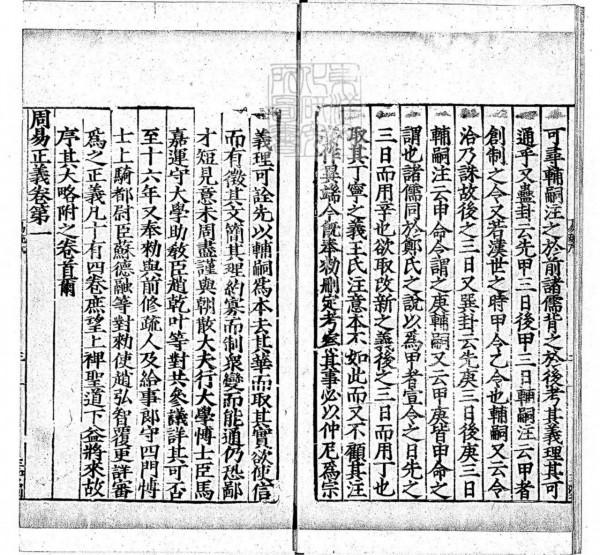 可事輔嗣注之於前諸儒背之於後考其義理其可
通乎又蠱卦云先甲三日後甲三日輔嗣注云甲者
創制之令又若漢世之時甲令乙令也輔嗣又云令
洽乃誅故後之三日又巽卦云先庚三日後庚三日
輔嗣注云申命令謂之庚輔嗣又云甲庚皆申命之
謂也諸儒同於鄭氏之說以爲甲者宣令之日先之
三日而用辛也欲取改新之義後之三日而用丁也
取其丁寧之義王氏注意本不如此而又不顧其注
妄作異端今既奉勑刪定考案其事必以仲尼爲宗
義理可詮先以輔嗣爲本去其華而取其實欲使信
而有徵其文簡其理約寡而制衆變而能通仍恐鄙
才短見意未周盡謹與朝散大夫行大學博士臣馬
嘉運守大學助教臣趙乾叶等對共參議詳其可否
至十六年又奉勑與前修疏人及給事郎守四門博
士上騎都尉臣蘇德融等對勑使趙弘智覆更詳審
爲之正義凡十有四卷庶望上裨聖道下益將來故
序其大略附之卷首爾
周易正義卷第一